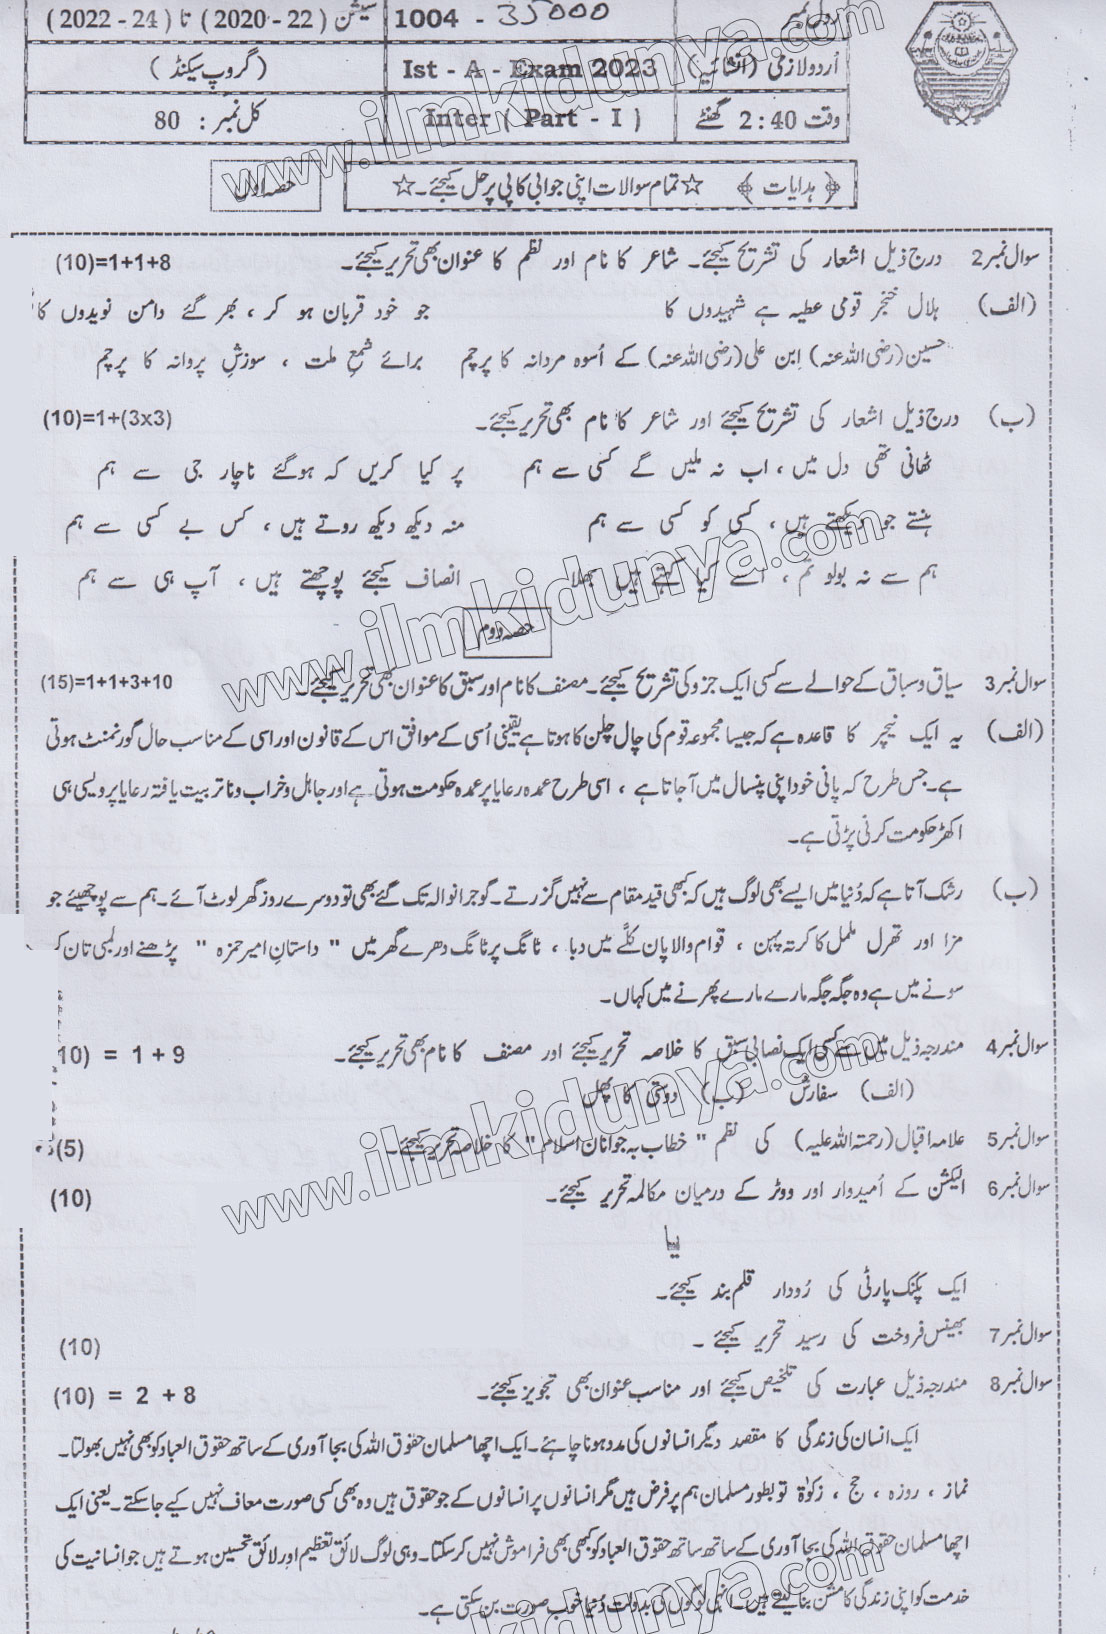 رول نمبر 1004 - 35000 سیشن (2020 - 22) تا (2022 - 24)
اُردو لازمی (انشائیہ) Ist - A - Exam 2023 (گروپ سیکنڈ)
وقت 2:40 گھنٹے Inter ( Part - I ) کل نمبر : 80
﴿ ہدایات ﴾ ☆ تمام سوالات اپنی جوابی کاپی پر حل کیجئے۔ ☆ حصہ اول
سوال نمبر 2 درج ذیل اشعار کی تشریح کیجئے۔ شاعر کا نام اور نظم کا عنوان بھی تحریر کیجئے۔ (10)=1+1+8
(الف) ہلال خنجر قومی عطیہ ہے شہیدوں کا جو خود قربان ہو کر ، بھر گئے دامن نویدوں کا
حسین (رضی اللہ عنہ) اِبن علی (رضی اللہ عنہ) کے اُسوہ مردانہ کا پرچم برائے شمعِ ملت ، سوزشِ پروانہ کا پرچم
(ب) درج ذیل اشعار کی تشریح کیجئے اور شاعر کا نام بھی تحریر کیجئے۔ (10)=1+(3x3)
ٹھانی تھی دل میں ، اب نہ ملیں گے کسی سے ہم پر کیا کریں کہ ہوگئے ناچار جی سے ہم
ہنستے جو دیکھتے ہیں ، کسی کو کسی سے ہم منہ دیکھ دیکھ روتے ہیں ، کس بے کسی سے ہم
ہم سے نہ بولو تم ، اسے کیا کہتے ہیں بھلا انصاف کیجئے پوچھتے ہیں ، آپ ہی سے ہم
حصہ دوم
سوال نمبر 3 سیاق و سباق کے حوالے سے کسی ایک جزو کی تشریح کیجئے۔ مصنف کا نام اور سبق کا عنوان بھی تحریر کیجئے۔ (15)=1+1+3+10
(الف) یہ ایک نیچر کا قاعدہ ہے کہ جیسا مجموعہ قوم کی چال چلن کا ہوتا ہے یقینی اُسی کے موافق اس کے قانون اور اسی کے مناسب حال گورنمنٹ ہوتی
ہے۔ جس طرح کہ پانی خود اپنی پنسال میں آجاتا ہے ، اسی طرح عمدہ رعایا پر عمدہ حکومت ہوتی ہے اور جاہل و خراب و ناتربیت یافتہ رعایا پر ویسی ہی
اکھڑ حکومت کرنی پڑتی ہے۔
(ب) رشک آتا ہے کہ دُنیا میں ایسے بھی لوگ ہیں کہ کبھی قید مقام سے نہیں گزرتے۔ گوجرانوالہ تک گئے بھی تو دوسرے روز گھر لوٹ آئے۔ ہم سے پوچھیئے جو
مزا اور تھرل ململ کا کرتہ پہن ، قوام والا پان کلّے میں دبا ، ٹانگ پر ٹانگ دھرے گھر میں " داستانِ امیر حمزہ " پڑھنے اور لمبی تان کر
سونے میں ہے وہ جگہ جگہ مارے مارے پھرنے میں کہاں۔
سوال نمبر 4 مندرجہ ذیل میں سے کسی ایک نصابی سبق کا خلاصہ تحریر کیجئے اور مصنف کا نام بھی تحریر کیجئے۔ 10) = 1 + 9
(الف) سفارش (ب) دوستی کا پھل
سوال نمبر 5 علامہ اقبال (رحمتہ اللہ علیہ) کی نظم " خطاب بہ جوانانِ اسلام " کا خلاصہ تحریر کیجئے۔ (5)
سوال نمبر 6 الیکشن کے اُمیدوار اور ووٹر کے درمیان مکالمہ تحریر کیجئے۔ (10)
یا
ایک پکنک پارٹی کی رُوداد قلم بند کیجئے۔
سوال نمبر 7 بھینس فروخت کی رسید تحریر کیجئے۔ (10)
سوال نمبر 8 مندرجہ ذیل عبارت کی تلخیص کیجئے اور مناسب عنوان بھی تجویز کیجئے۔ (10) = 2 + 8
ایک انسان کی زندگی کا مقصد دیگر انسانوں کی مدد ہونا چاہئے۔ ایک اچھا مسلمان حقوق اللہ کی بجا آوری کے ساتھ حقوق العباد کو بھی نہیں بھولتا۔
نماز ، روزہ ، حج ، زکوٰۃ تو بطور مسلمان ہم پر فرض ہیں مگر انسانوں پر انسانوں کے جو حقوق ہیں وہ بھی کسی صورت معاف نہیں کیے جاسکتے۔ یعنی ایک
اچھا مسلمان حقوق اللہ کی بجا آوری کے ساتھ ساتھ حقوق العباد کو کبھی بھی فراموش نہیں کرسکتا۔ وہی لوگ لائق تعظیم اور لائق تحسین ہوتے ہیں جو انسانیت کی
خدمت کو اپنی زندگی کا مشن بنالیتے ہیں۔ انہی لوگوں کی بدولت دُنیا خوب صورت بن سکتی ہے۔
www.ilmkidunya.com
www.ilmkidunya.com
www.ilmkidunya.com